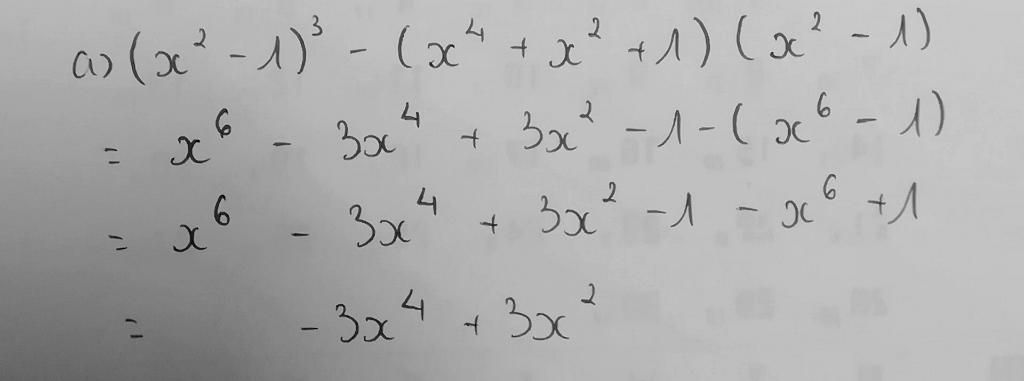 a) (x² - 1)³ - (x⁴ + x² + 1) (x² - 1)
= x⁶ - 3x⁴ + 3x² - 1 - (x⁶ - 1)
= x⁶ - 3x⁴ + 3x² - 1 - x⁶ + 1
= - 3x⁴ + 3x²